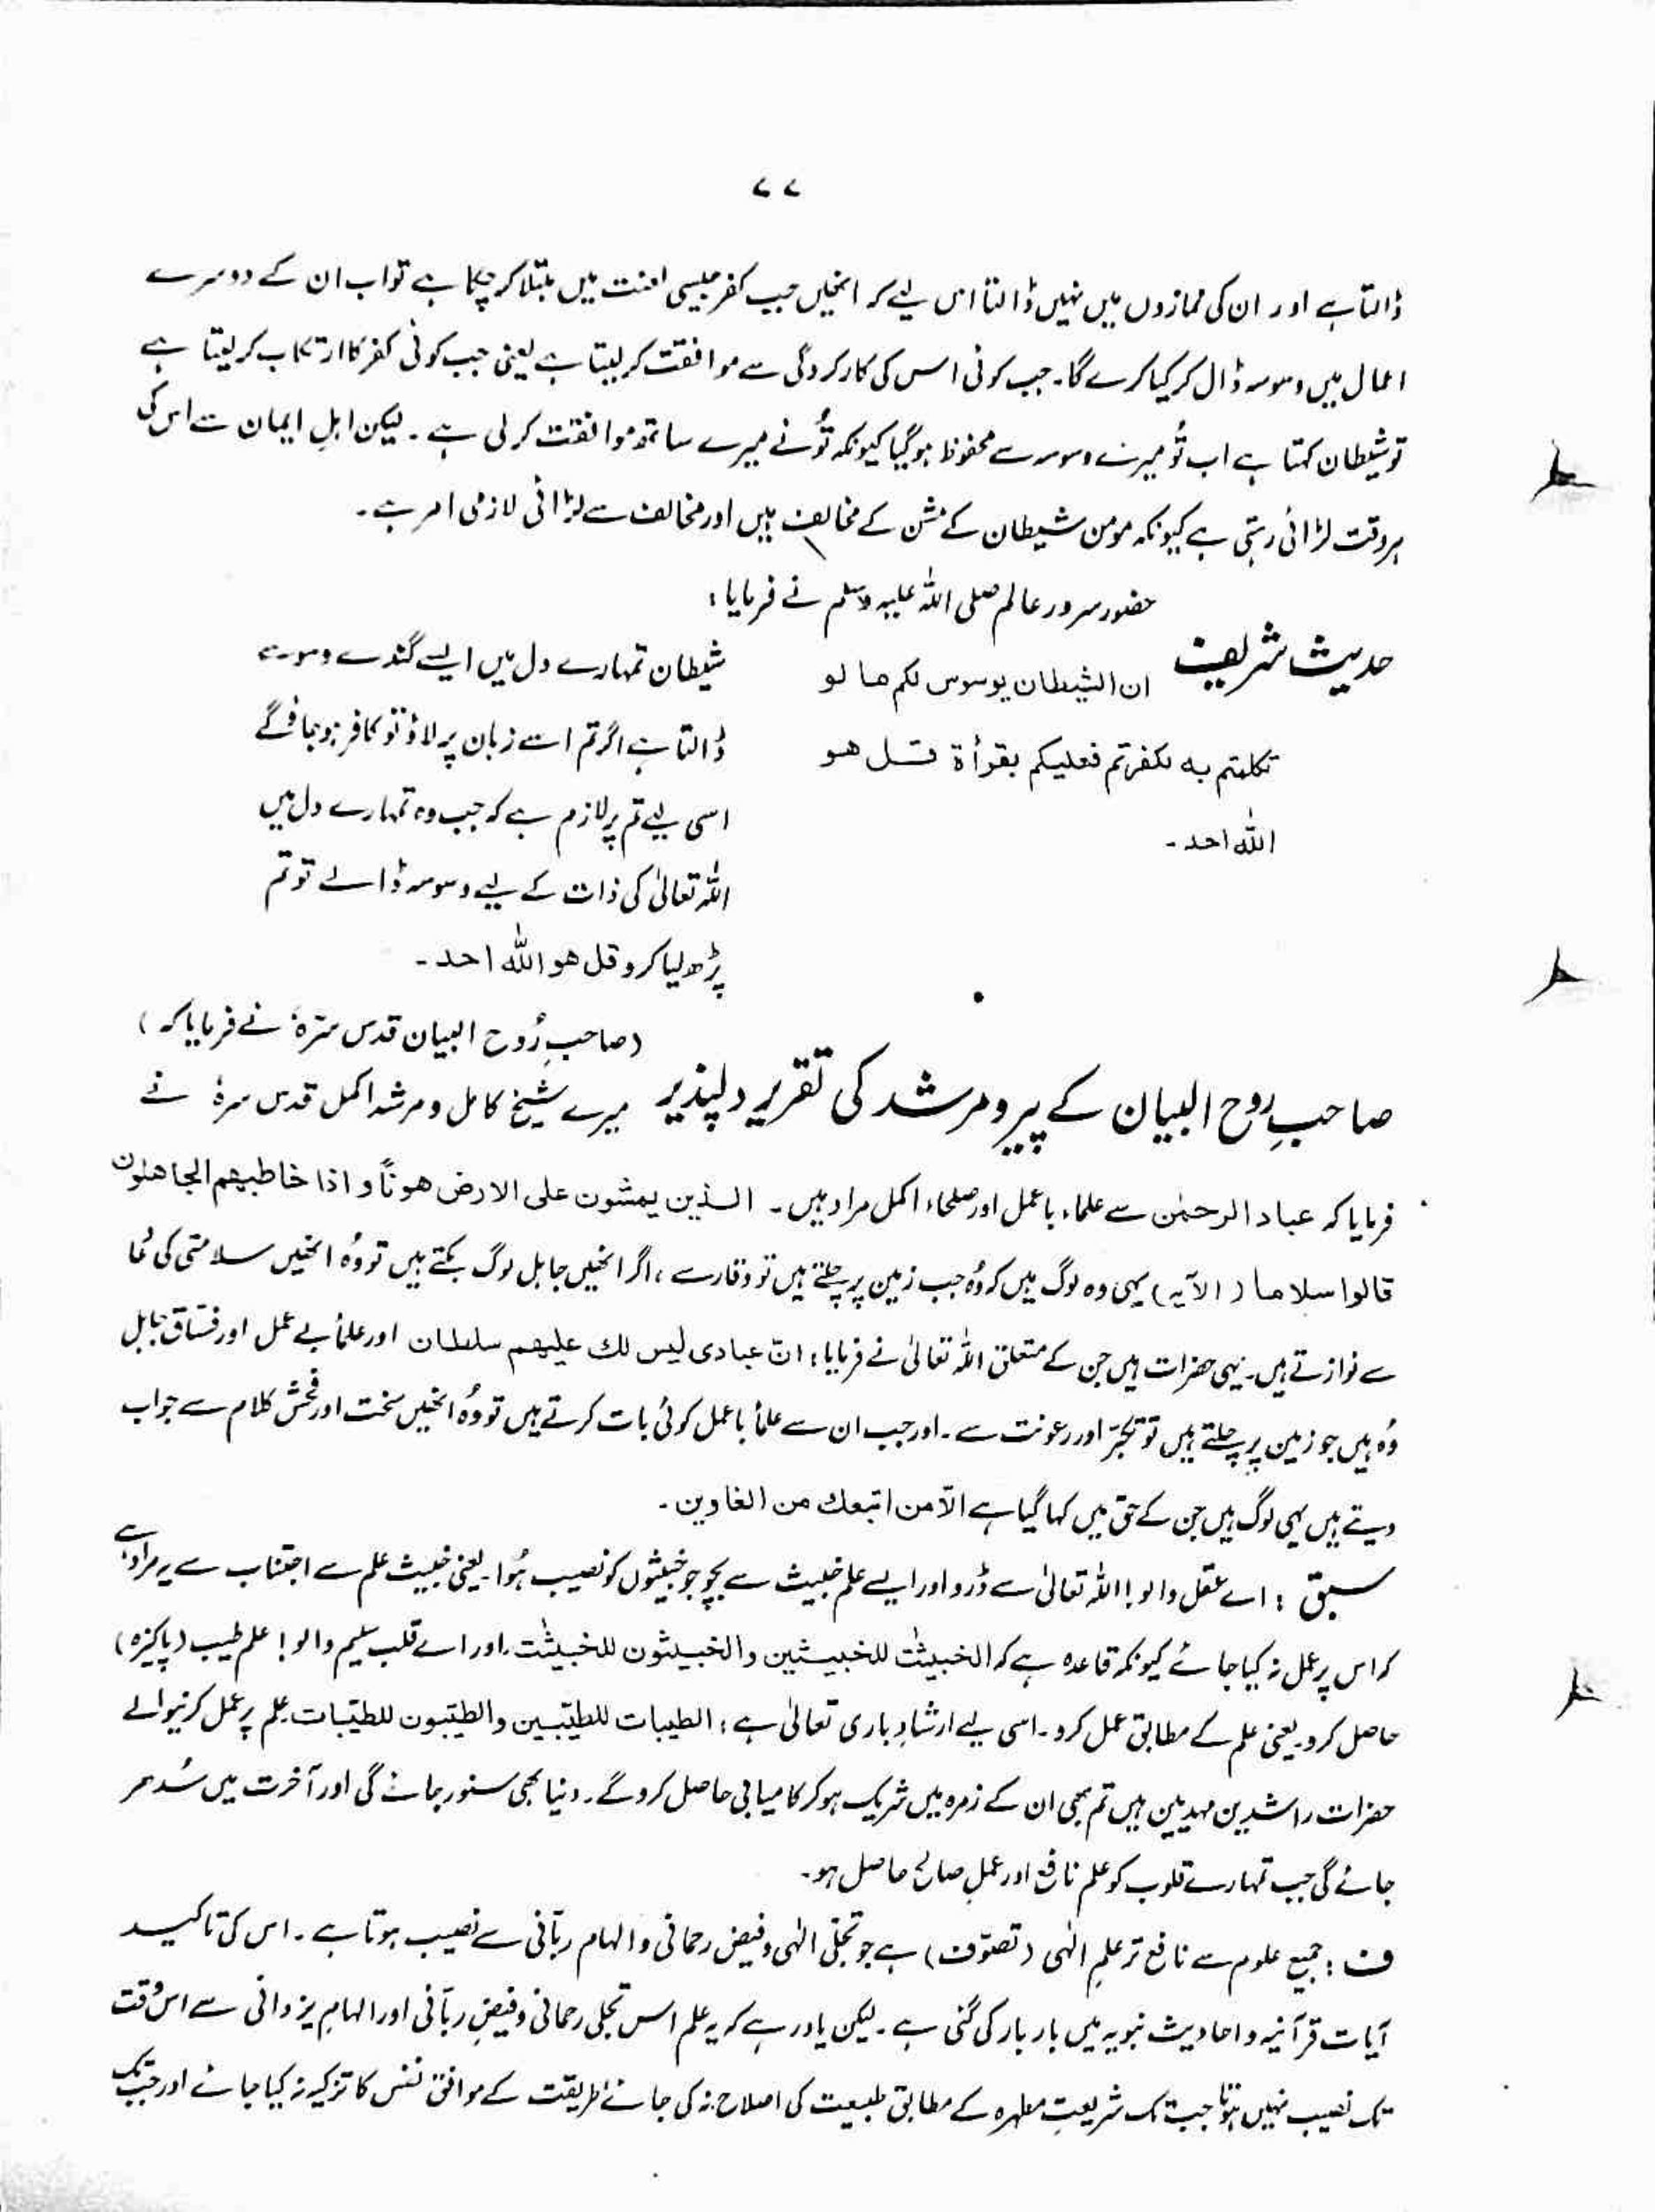 ۷۷
ڈالتا ہے اور ان کی نمازوں میں نہیں ڈالتا اس لیے کہ انھیں جب کفر جیسی لعنت میں مبتلا کر چکا ہے تو اب ان کے دوسرے
اعمال میں وسوسہ ڈال کر کیا کرے گا۔ جب کوئی اس کی کارکردگی سے موافقت کر لیتا ہے یعنی جب کوئی کفر کا ارتکاب کر لیتا ہے
تو شیطان کہتا ہے اب تُو میرے وسوسہ سے محفوظ ہو گیا کیونکہ تُو نے میرے ساتھ موافقت کر لی ہے۔ لیکن اہلِ ایمان سے اس کی
ہر وقت لڑائی رہتی ہے کیونکہ مومن شیطان کے مشن کے مخالف ہیں اور مخالف سے لڑائی لازمی امر ہے۔
حضور سرور عالم صلی اللہ علیہ وسلم نے فرمایا:
حدیث شریف
ان الشیطان یوسوس لکم ما لو
تکلمتم بہ لکفرتم فعلیکم بقرأۃ قل ھو
اللہ احد۔
شیطان تمہارے دل میں ایسے گندے وسوسے
ڈالتا ہے اگر تم اسے زبان پر لاؤ تو کافر ہو جاؤ گے
اسی لیے تم پر لازم ہے کہ جب وہ تمہارے دل میں
اللہ تعالیٰ کی ذات کے لیے وسوسہ ڈالے تو تم
پڑھ لیا کرو قل ھو اللہ احد۔
(صاحبِ رُوح البیان قدس سرّہٗ نے فرمایا کہ)
صاحبِ روح البیان کے پیر و مرشد کی تقریر دلپذیر میرے شیخ کامل و مرشد اکمل قدس سرہٗ نے
فرمایا کہ عباد الرحمٰن سے علماء باعمل اور صلحاء اکمل مراد ہیں۔ الذین یمشون علی الارض ھونًا و اذا خاطبھم الجاھلون
قالوا سلاما (الآیہ) یہی وہ لوگ ہیں کہ وُہ جب زمین پر چلتے ہیں تو وقار سے، اگر انھیں جاہل لوگ بکتے ہیں تو وُہ انھیں سلامتی کی دُعا
سے نوازتے ہیں۔ یہی حضرات ہیں جن کے متعلق اللہ تعالیٰ نے فرمایا: انّ عبادی لیس لک علیھم سلطان اور علمأ بے عمل اور فسّاق جاہل
وُہ ہیں جو زمین پر چلتے ہیں تو تکبّر اور رعونت سے۔ اور جب ان سے علمأ باعمل کوئی بات کرتے ہیں تو وُہ انھیں سخت اور فحش کلام سے جواب
دیتے ہیں یہی لوگ ہیں جن کے حق میں کہا گیا ہے الّا من اتبعک من الغاوین۔
سبق: اے عقل والو! اللہ تعالیٰ سے ڈرو اور ایسے علم خبیث سے بچو جو خبیثوں کو نصیب ہُوا۔ یعنی خبیث علم سے اجتناب سے یہ مراد ہے
کہ اس پر عمل نہ کیا جائے کیونکہ قاعدہ ہے کہ الخبیثٰت للخبیثین والخبیثون للخبیثٰت۔ اور اے قلب سلیم والو! علم طیب (پاکیزہ)
حاصل کرو۔ یعنی علم کے مطابق عمل کرو۔ اسی لیے ارشادِ باری تعالیٰ ہے: الطیبات للطیّبین والطیّبون للطیّبات۔ علم پر عمل کرنیوالے
حضرات راشدین مہدیین ہیں تم بھی ان کے زمرہ میں شریک ہو کر کامیابی حاصل کرو گے۔ دنیا بھی سنور جائے گی اور آخرت میں سُدھر
جائے گی جب تمہارے قلوب کو علم نافع اور عمل صالح حاصل ہو۔
ف: جمیع علوم سے نافع تر علمِ الٰہی (تصوّف) ہے جو تجلّی الٰہی و فیض رحمانی و الہام ربّانی سے نصیب ہوتا ہے۔ اس کی تاکید
آیات قرآنیہ و احادیث نبویہ میں بار بار کی گئی ہے۔ لیکن یاد رہے کہ یہ علم اس تجلی رحمانی و فیضِ ربّانی اور الہامِ یزدانی سے اس وقت
تک نصیب نہیں ہوتا جب تک شریعتِ مطہرہ کے مطابق طبیعت کی اصلاح نہ کی جائے طریقت کے موافق نفس کا تزکیہ نہ کیا جائے اور جب تک